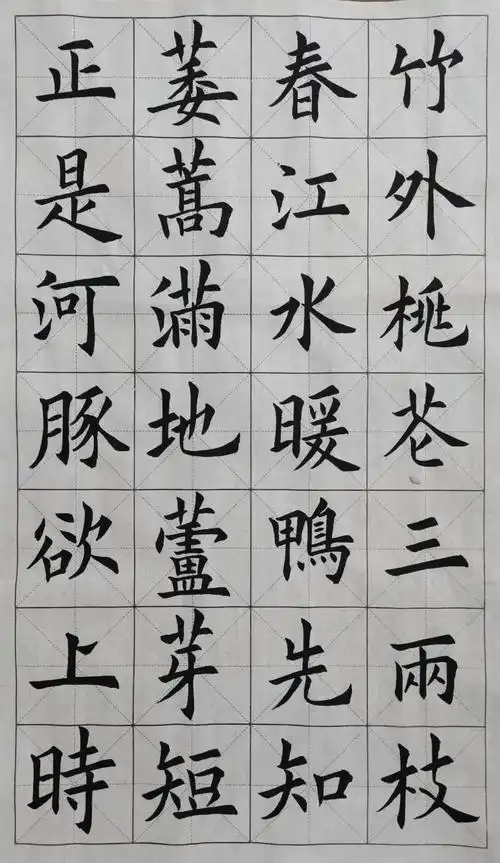 竹外桃花三兩枝
春江水暖鴨先知
蔞蒿滿地蘆芽短
正是河豚欲上時